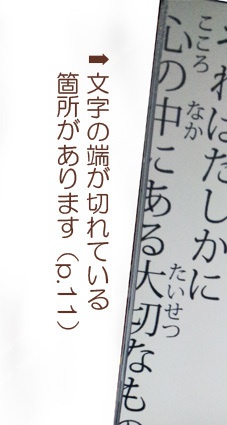 それはたしかに
こころ なか たいせつ
心の中にある大切なもの
➡文字の端が切れている
箇所があります（p.11）